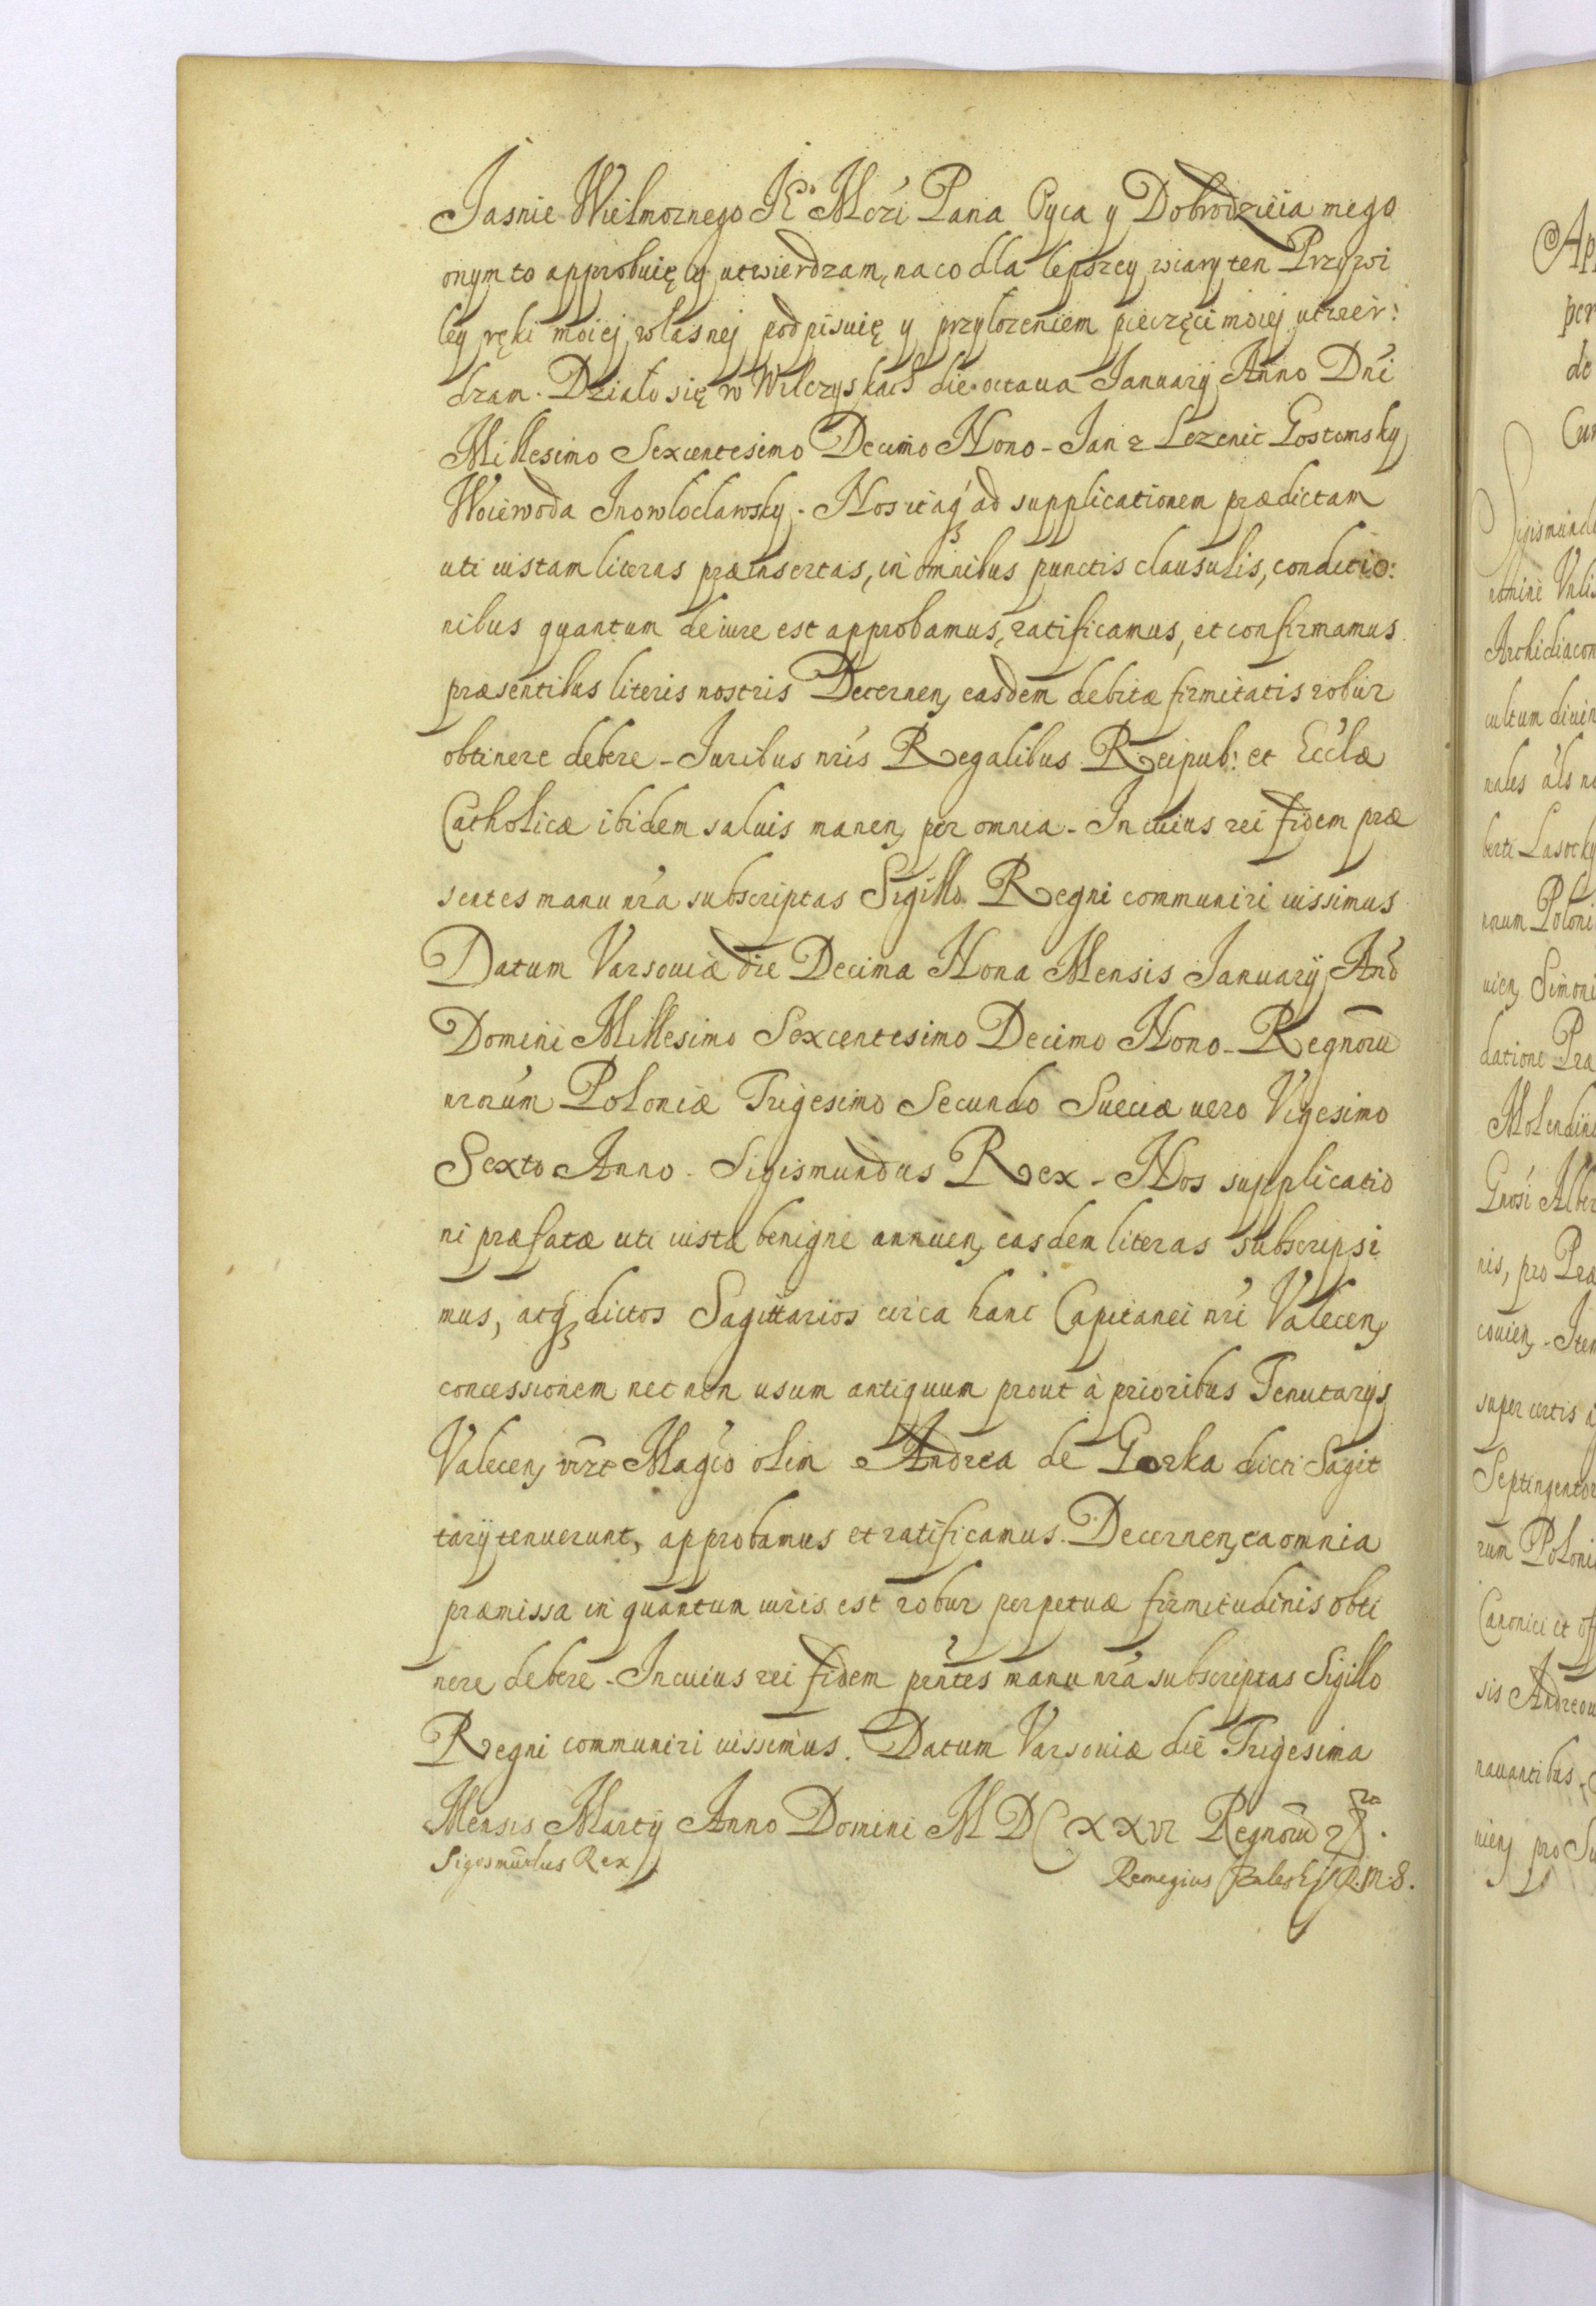 Jasnie Wielmoznego JE° Mczi Pana Oyca y Dobrodzieia mego
onym to approbuię y utwierdzam, na co dla lepszey wiary ten Przywi
ley ręki moiej własnej podpisuię y przylozeniem pieczęci moiej utwier:
dzam. Działo się w Wilczyskach die octaua January Anno Dni
Millesimo Sexcentesimo Decimo Nono - Jan z Lezenic Gostomsky
Woiewoda Inowloclawsky - Nos itaq ad supplicationem prædictam
uti iustam literas præinsertas, in omnibus punctis clausulis, conditio:
nibus quantum de iure est approbamus, ratificamus, et confirmamus
præsentibus literis nostris Decernen, easdem debitæ firmitatis robur
obtinere debere - Juribus nris Regalibus Reipub: et Ecclæ
Catholicæ ibidem saluis manen, per omnia - In cuius rei fidem præ
sentes manu nra subscriptas Sigillo Regni communiri iussimus
Datum Varsouiæ die Decima Nona Mensis Januarij Ano
Domini Millesimo Sexcentesimo Decimo Nono - Regnoru
nrorum Poloniæ Trigesimo Secundo Sueciæ uero Vigesimo
Sexto Anno - Sigismundus Rex - Nos supplicatio
ni præfatæ uti iustæ benigne annuen, easdem literas subscripsi
mus, atq dictos Sagittarios circa hanc Capitanei nri Valecen,
concessionem nec non usum antiquum prout à prioribus Tenutarijs
Valecen, Magco olim Andrea de Gorka dicti Sagit
tarij tenuerunt, approbamus et ratificamus. Decernen, ea omnia
præmissa in quantum iuris est robur perpetuæ firmitudinis obti
nere debere - In cuius rei fidem pñtes manu nra subscriptas Sigillo
Regni communiri iussimus. Datum Varsouiæ die Trigesima
Mensis Martij Anno Domini MDCXXVI Regnoru
Sigismudus Rex
Remigius Zaleskj R.M.S.
Ap
per
de
Cur
Sigismund
nomine Vnli
Archidiacon
cultum diuin
nales als no
berti Lasocky
nrum Poloni
uien, Simoni
datione Pra
Molendini
Gnosi Alber
nis, pro Præ
couien, - Item
super certis
Septingentor
rum Poloni
Canonici et off
sis Andreou
nauantibus
uien, pro Su